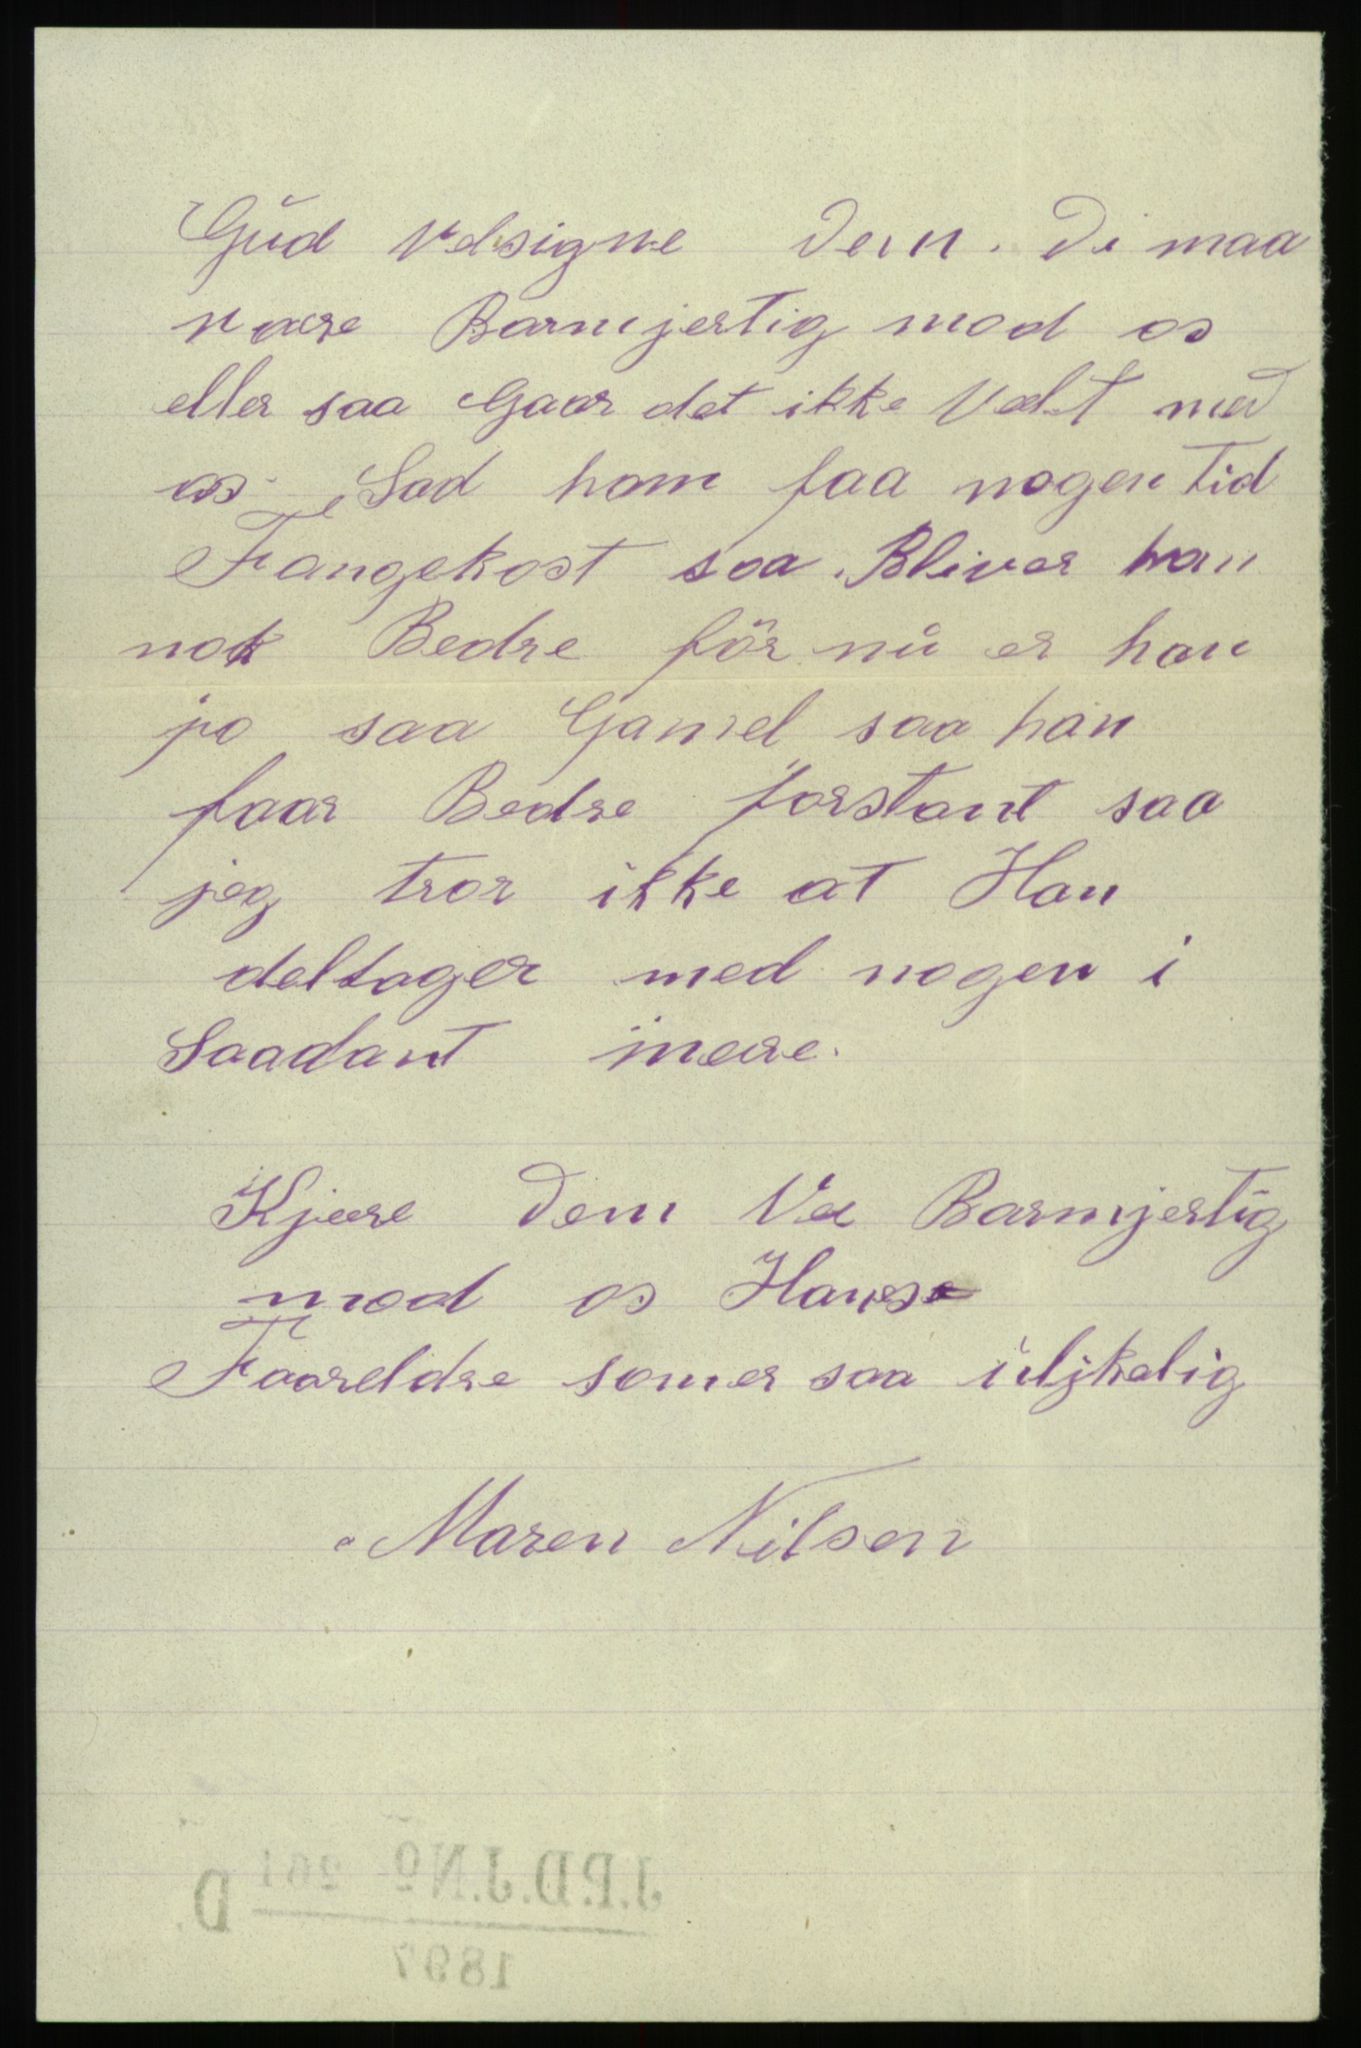 Gud Velsigne Dem. Di maa
være Barmjertig mod os
eller saa Gaar det ikke Vælt med
os. Lad ham faa nogen tid
Fangekost saa Bliver han
nok Bedre för nu er han
jo saa Gamel saa han
faar Bedre forstant saa
jeg tror ikke at Han
deltager med nogen i
Saadant mere.
Kjære Dem Væ Barmjertig
mod os Hanse
Faareldre somer saa uljkelig
Maren Nilsen
J.P.D.J.No 261 D.
1897